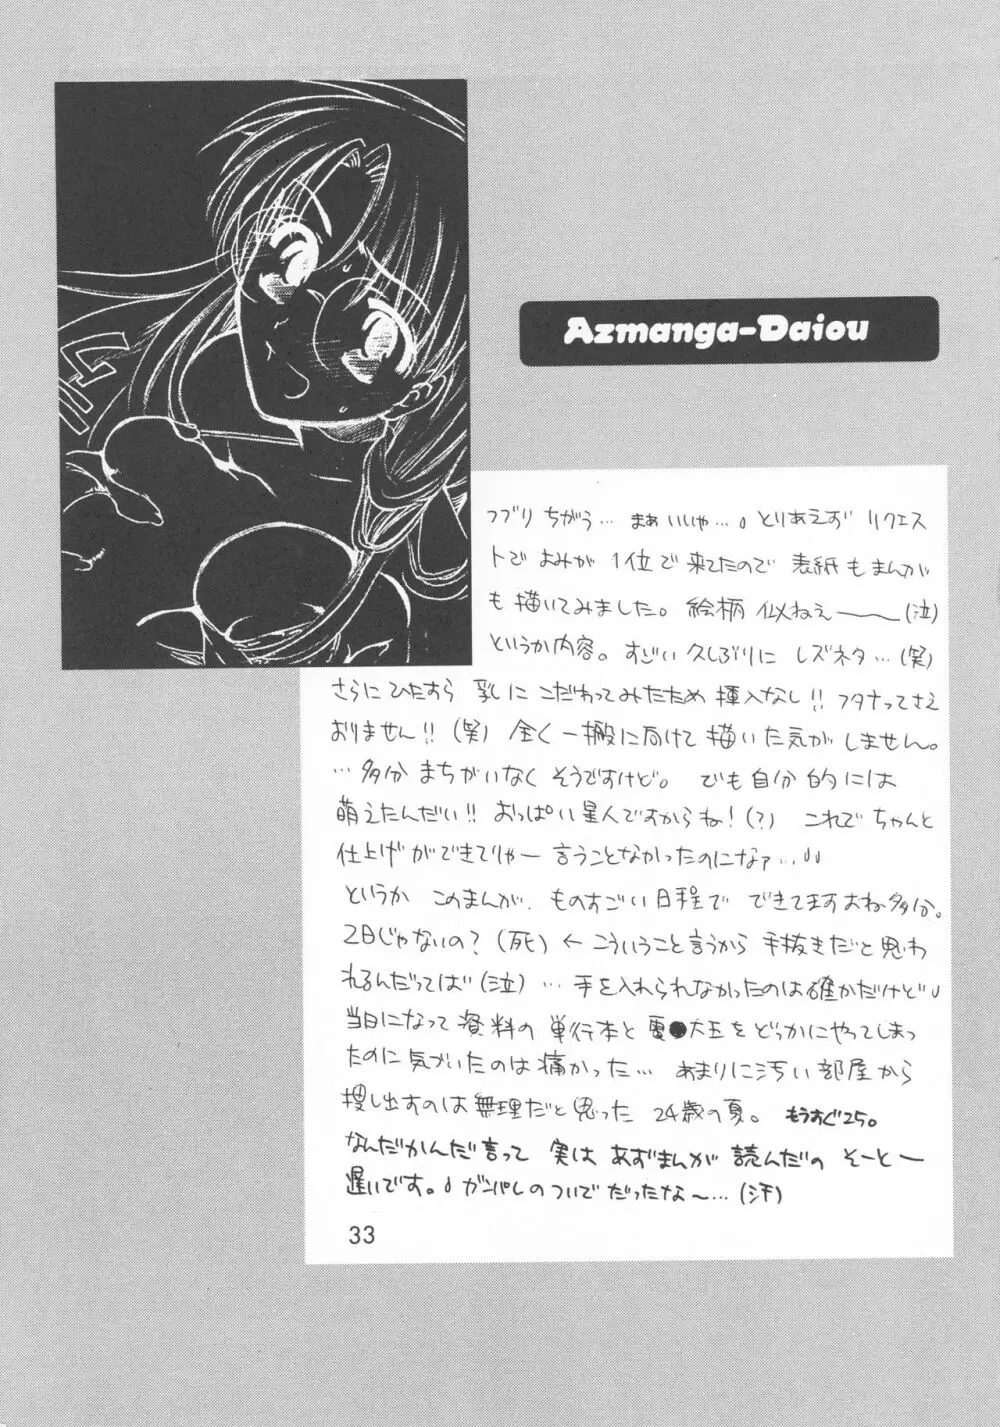 Azmanga-Daiou
フブリ ちがう… まぁいいや…。とりあえず リクエス
トで よみが 1位で 来てたので 表紙もまんが
も 描いてみました。 絵柄 似ねえ――(泣)
というか内容。 すごい久しぶりに レズネタ…(笑)
さらにひたすら 乳に こだわってみたため 挿入なし!! フタナってさえ
おりません!! (笑) 全く一般に向けて 描いた気がしません。
…多分 まちがいなく そうですけど。 でも自分的には
萌えたんだい!! おっぱい星人ですからね!(?) これで ちゃんと
仕上げができてりゃー 言うことなかったのになァ…
というか このまんが、ものすごい日程で できてますよね多分。
2日じゃないの?(死) ← こういうこと言うから 手抜きだと思わ
れるんだってば(泣) … 手を入れられなかったのは確かだけど
当日になって 資料の 単行本と 電●大王を どっかにやってしまっ
たのに 気づいたのは痛かった… あまりに汚い部屋から
捜し出すのは無理だと思った 24歳の夏。 もうすぐ25。
なんだかんだ言って 実は あずまんが 読んだの そーとー
遅いです。 ガンパレのついでだったな〜…(汗)
33